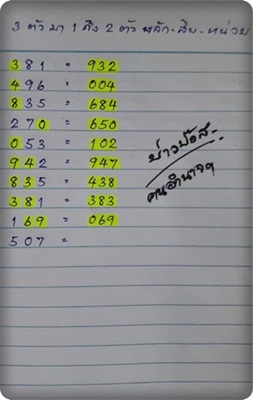 3 ตัว มา 1 ถึง 2 ตัว หลัก-สิบ-หน่วย
381 = 932
496 = 004
835 = 684
270 = 650
053 = 102
942 = 947
835 = 438
381 = 383
169 = 069
507 =
บ่าวป๊อส-
คนอำนาจฯ